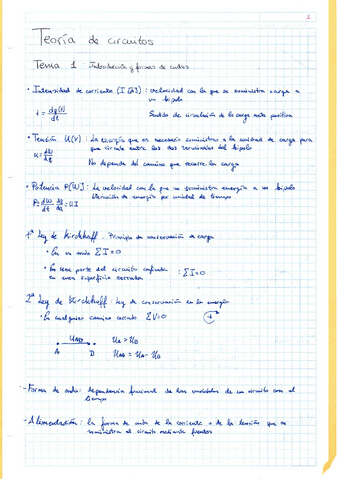 1
Teoría de circuitos
Tema 1: Introducción y formas de ondas
• Intensidad de corriente (I [A]): velocidad con la que se suministra carga a
un bipolo
i = dq(t)/dt Sentido de circulación de la carga neta positiva
• Tensión U(V): La energía que es necesario suministrar a la unidad de carga para
que circule entre los dos terminales del bipolo
No depende del camino que recorre la carga
• Potencia P[W]: La velocidad con la que se suministra energía a un bipolo
energía por unidad de tiempo
1ª Ley de Kirchhoff: Principio de conservación de carga
• En un nudo ΣI=0
• En una parte del circuito confinada : ΣI=0
en una superficie cerrada
2ª Ley de Kirchhoff: ley de conservación de la energía
• En cualquier camino cerrado ΣV=0
U_AB U_A > U_B
A B U_AB = U_A - U_B
- Forma de onda: dependencia funcional de las variables de un circuito con el
tiempo
- Alimentación: la forma de onda de la corriente o de la tensión que se
suministra al circuito mediante fuentes